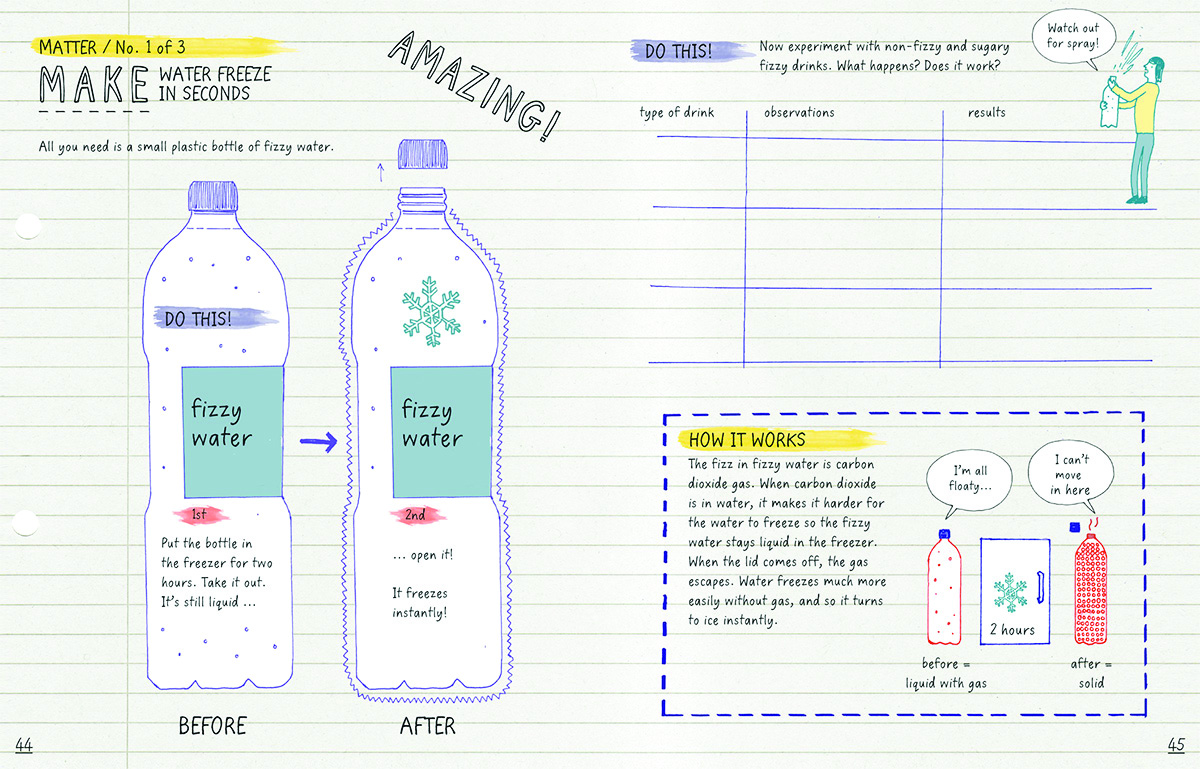 MATTER / No. 1 of 3
MAKE WATER FREEZE
IN SECONDS
AMAZING!
All you need is a small plastic bottle of fizzy water.
DO THIS!
fizzy
water
1st
Put the bottle in
the freezer for two
hours. Take it out.
It's still liquid ...
BEFORE
fizzy
water
2nd
... open it!
It freezes
instantly!
AFTER
44
DO THIS!
Now experiment with non-fizzy and sugary
fizzy drinks. What happens? Does it work?
Watch out
for spray!
type of drink observations results
HOW IT WORKS
The fizz in fizzy water is carbon
dioxide gas. When carbon dioxide
is in water, it makes it harder for
the water to freeze so the fizzy
water stays liquid in the freezer.
When the lid comes off, the gas
escapes. Water freezes much more
easily without gas, and so it turns
to ice instantly.
I'm all
floaty...
I can't
move
in here
2 hours
before =
liquid with gas
after =
solid
45